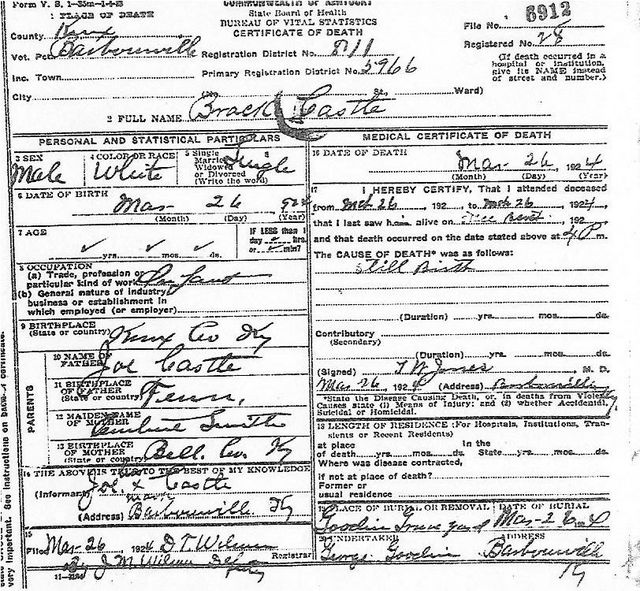 Form V. S. 1-35m-1-4-23
COMMONWEALTH OF KENTUCKY
1 PLACE OF DEATH
State Board of Health
BUREAU OF VITAL STATISTICS
CERTIFICATE OF DEATH
File No. 6912
County Knox
Registered No. 28
Vot. Pct. Barbourville Registration District No. 811
(If death occurred in a hospital or institution, give its NAME instead of street and number.)
Inc. Town Primary Registration District No. 5966
City St. Ward)
2 FULL NAME Brack Castle
PERSONAL AND STATISTICAL PARTICULARS
3 SEX Male
4 COLOR OR RACE White
5 Single Married Widowed or Divorced (Write the word) Single
6 DATE OF BIRTH Mar 26
(Month) (Day) (Year)
7 AGE yrs. mos. ds.
IF LESS than 1 day hrs. or min?
8 OCCUPATION
(a) Trade, profession or particular kind of work Infant
(b) General nature of industry business or establishment in which employed (or employer)
9 BIRTHPLACE
(State or country) Knox Co Ky
PARENTS
10 NAME OF FATHER Joe Castle
11 BIRTHPLACE OF FATHER (State or country) Tenn.
12 MAIDEN NAME OF MOTHER Smith
13 BIRTHPLACE OF MOTHER (State or country) Bell Co. Ky
14 THE ABOVE IS TRUE TO THE BEST OF MY KNOWLEDGE
(Informant) Joe X Castle
mark
(Address) Barbourville Ky
15
Filed Mar 26 1924 D T. Wilson
Registrar
By J M Wilson Dpty
MEDICAL CERTIFICATE OF DEATH
16 DATE OF DEATH Mar 26 1924
(Month) (Day) (Year)
17 I HEREBY CERTIFY, That I attended deceased
from Mch 26 192 to Mch 26 1924
that I last saw h alive on 192
and that death occurred on the date stated above at 4 P m.
The CAUSE OF DEATH* was as follows:
Still Birth
(Duration) yrs. mos. ds.
Contributory
(Secondary)
(Duration) yrs. mos. ds.
(Signed) Jones M. D.
Mar 26 1924 (Address) Barbourville
*State the Disease Causing Death, or, in deaths from Violent
Causes state (1) Means of Injury; and (2) whether Accidental,
Suicidal or Homicidal.
18 LENGTH OF RESIDENCE (For Hospitals, Institutions, Transients or Recent Residents)
at place of death yrs. mos. ds. In the State yrs. mos. ds.
Where was disease contracted,
if not at place of death?
Former or
usual residence
19 PLACE OF BURIAL OR REMOVAL Goodin Grave yard
DATE OF BURIAL Mar-26
20 UNDERTAKER George Goodin
ADDRESS Barbourville
Ky